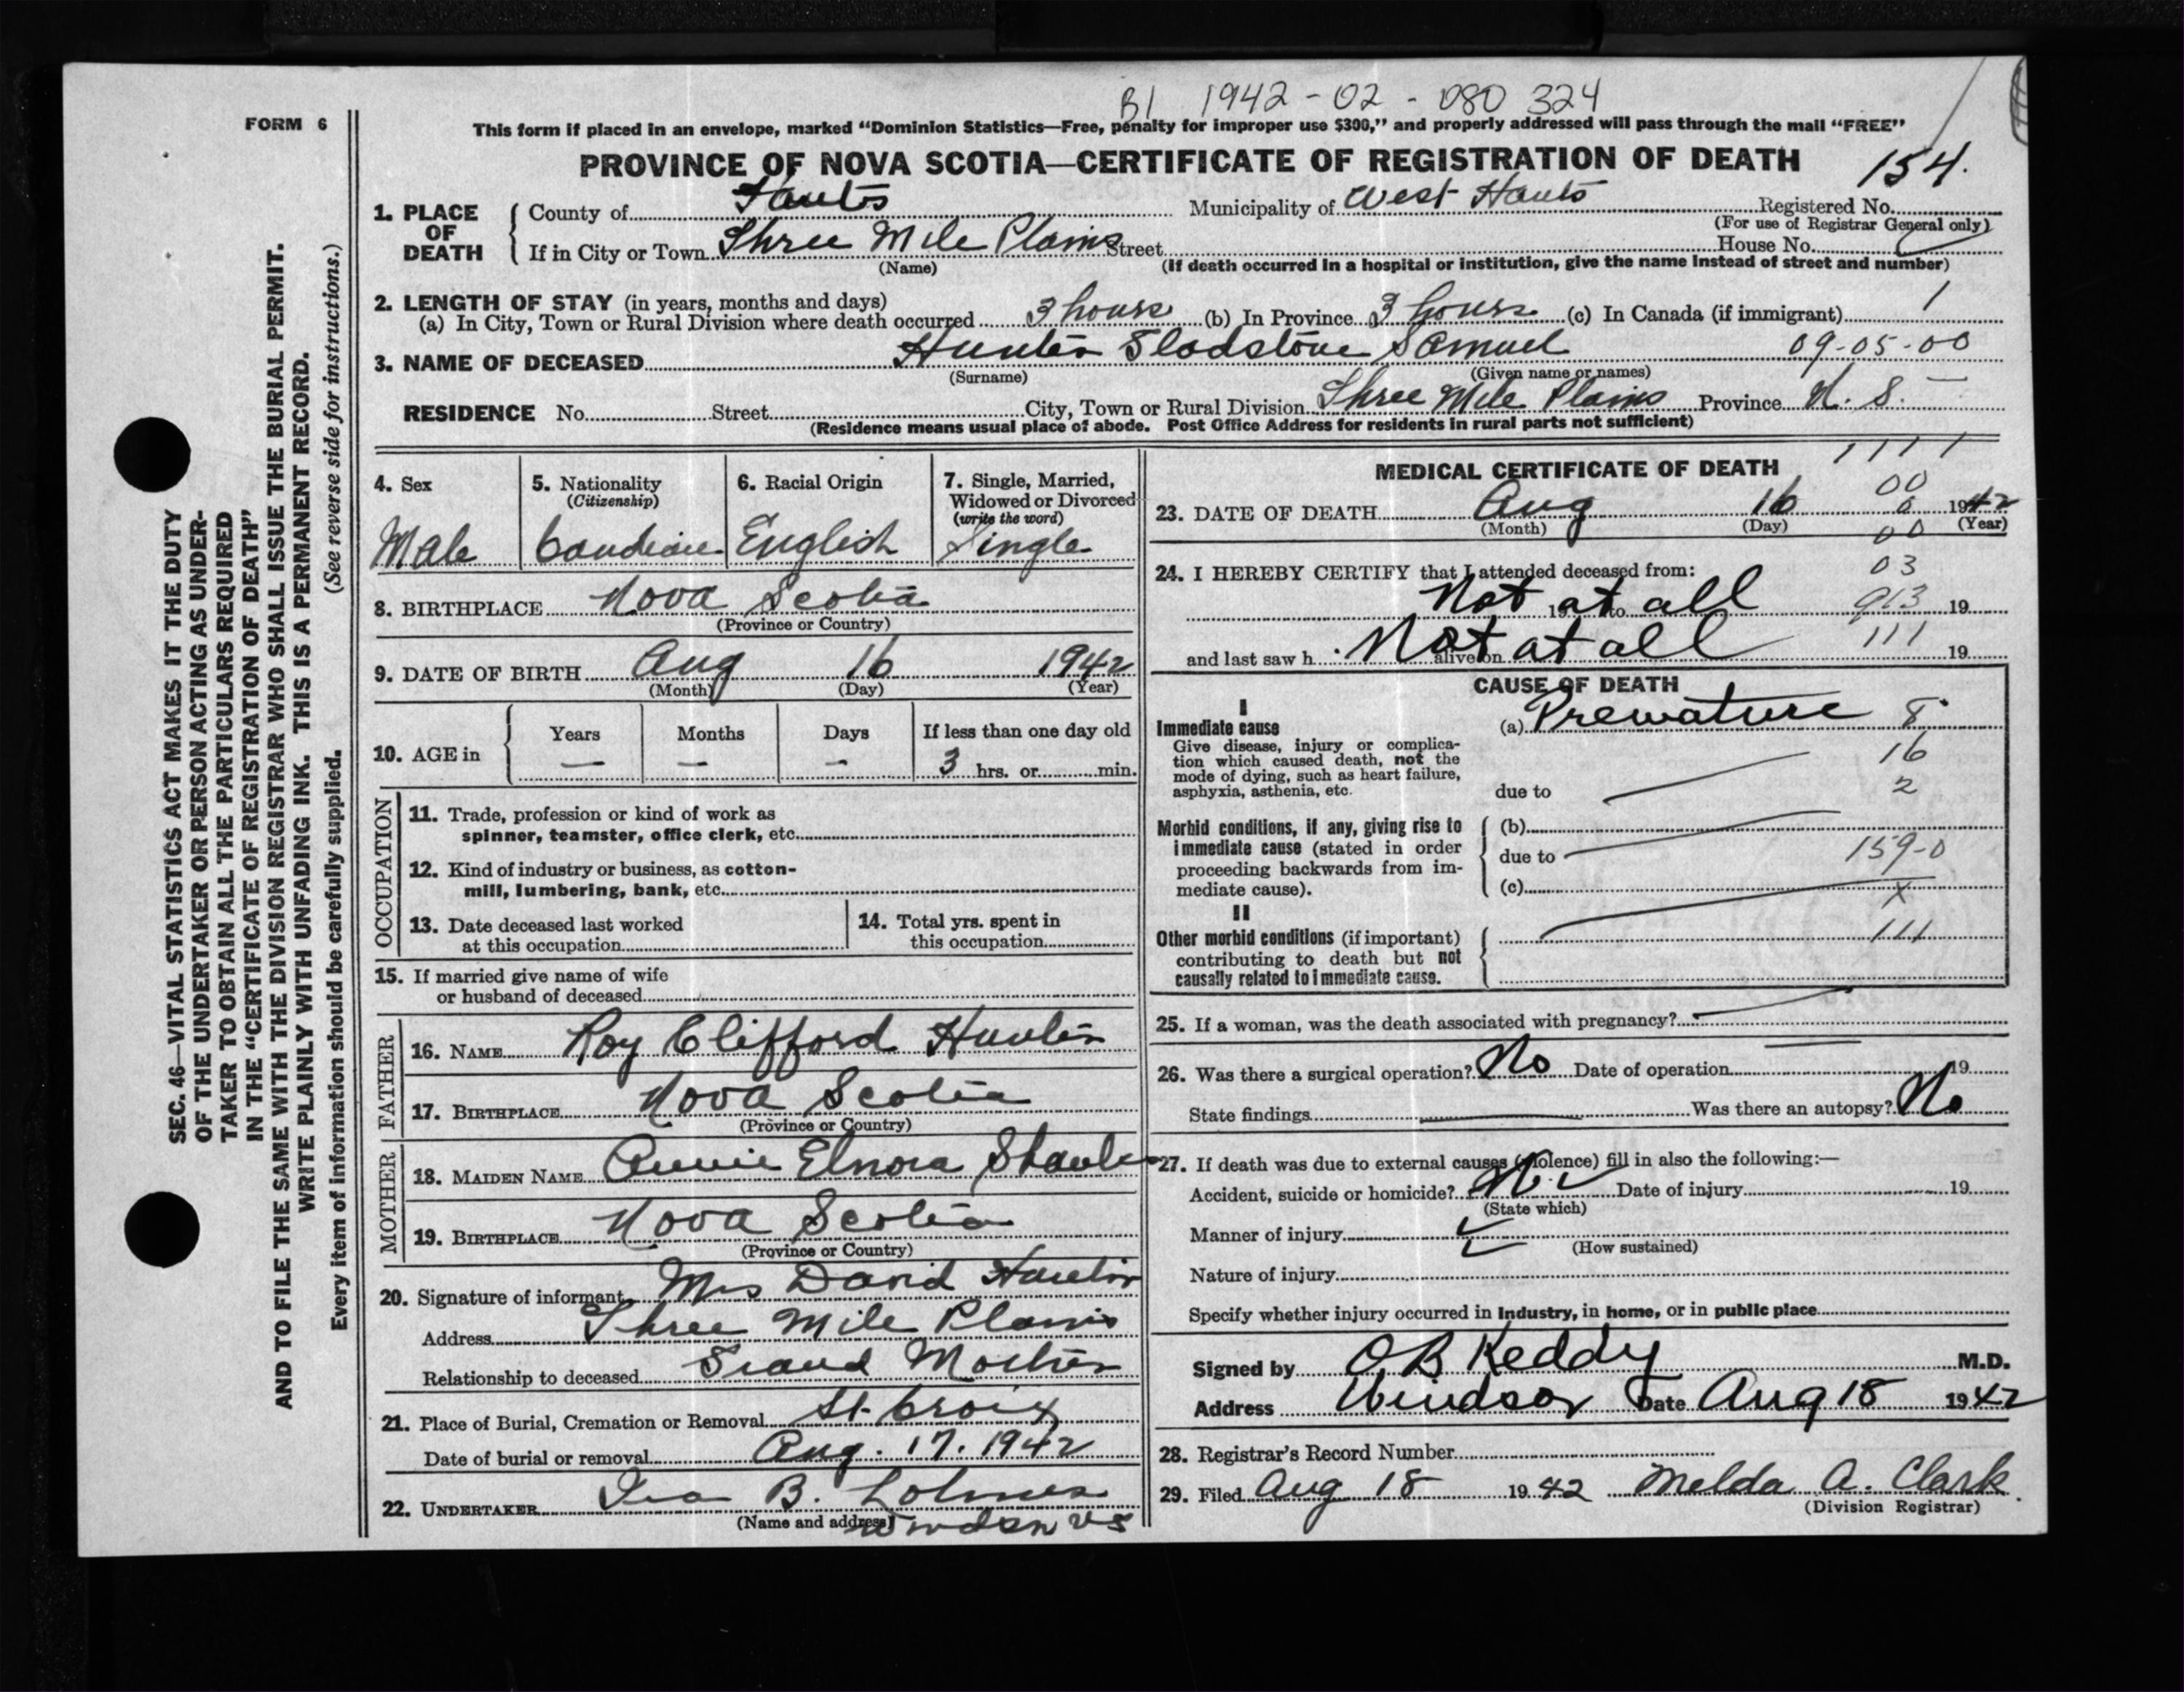 B1 1942-02-080 324
FORM 6
This form if placed in an envelope, marked “Dominion Statistics—Free, penalty for improper use $300,” and properly addressed will pass through the mail “FREE”
PROVINCE OF NOVA SCOTIA—CERTIFICATE OF REGISTRATION OF DEATH
154.
1. PLACE OF DEATH
County of Hants Municipality of West Hants Registered No.
(For use of Registrar General only)
If in City or Town Three Mile Plains Street House No.
(Name) (If death occurred in a hospital or institution, give the name instead of street and number)
2. LENGTH OF STAY (in years, months and days)
(a) In City, Town or Rural Division where death occurred 3 hours (b) In Province 3 hours (c) In Canada (if immigrant) 1
3. NAME OF DECEASED Hunter Gladstone Samuel 09-05-00
(Surname) (Given name or names)
RESIDENCE No. Street City, Town or Rural Division Three Mile Plains Province N. S.
(Residence means usual place of abode. Post Office Address for residents in rural parts not sufficient)
4. Sex
Male
5. Nationality
(Citizenship)
Canadian
6. Racial Origin
English
7. Single, Married, Widowed or Divorced
(write the word)
Single
8. BIRTHPLACE Nova Scotia
(Province or Country)
9. DATE OF BIRTH Aug 16 1942
(Month) (Day) (Year)
10. AGE in
Years Months Days If less than one day old
— — — 3 hrs. or min.
OCCUPATION
11. Trade, profession or kind of work as
spinner, teamster, office clerk, etc.
12. Kind of industry or business, as cotton-
mill, lumbering, bank, etc.
13. Date deceased last worked
at this occupation
14. Total yrs. spent in
this occupation
15. If married give name of wife
or husband of deceased
FATHER
16. NAME Roy Clifford Hunter
17. BIRTHPLACE Nova Scotia
(Province or Country)
MOTHER
18. MAIDEN NAME Annie Elnora
19. BIRTHPLACE Nova Scotia
(Province or Country)
20. Signature of informant Mrs David Hunter
Address Three Mile Plains
Relationship to deceased Grand Mother
21. Place of Burial, Cremation or Removal St. Croix
Date of burial or removal Aug. 17. 1942
22. UNDERTAKER Ira B. Lohnes
(Name and address) Windsor NS
1111
MEDICAL CERTIFICATE OF DEATH
00
23. DATE OF DEATH Aug 16 0 1942
(Month) (Day) (Year)
00
24. I HEREBY CERTIFY that I attended deceased from: 03
Not at all 19 to 913 19
and last saw h alive on Not at all 111 19
CAUSE OF DEATH
I
Immediate cause
Give disease, injury or complica-
tion which caused death, not the
mode of dying, such as heart failure,
asphyxia, asthenia, etc.
(a) Premature 8
16
due to 2
Morbid conditions, if any, giving rise to
immediate cause (stated in order
proceeding backwards from im-
mediate cause).
(b)
due to 159-0
(c) X
II
Other morbid conditions (if important)
contributing to death but not
causally related to immediate cause.
111
25. If a woman, was the death associated with pregnancy?
26. Was there a surgical operation? No Date of operation 19
State findings Was there an autopsy? No
27. If death was due to external causes (violence) fill in also the following:—
Accident, suicide or homicide? No Date of injury 19
(State which)
Manner of injury
(How sustained)
Nature of injury
Specify whether injury occurred in industry, in home, or in public place
Signed by O B Keddy M.D.
Address Windsor Date Aug 18 1942
28. Registrar’s Record Number
29. Filed Aug 18 1942 Melda A. Clark
(Division Registrar)
SEC. 46—VITAL STATISTICS ACT MAKES IT THE DUTY
OF THE UNDERTAKER OR PERSON ACTING AS UNDER-
TAKER TO OBTAIN ALL THE PARTICULARS REQUIRED
IN THE “CERTIFICATE OF REGISTRATION OF DEATH”
AND TO FILE THE SAME WITH THE DIVISION REGISTRAR WHO SHALL ISSUE THE BURIAL PERMIT.
WRITE PLAINLY WITH UNFADING INK. THIS IS A PERMANENT RECORD.
Every item of information should be carefully supplied. (See reverse side for instructions.)